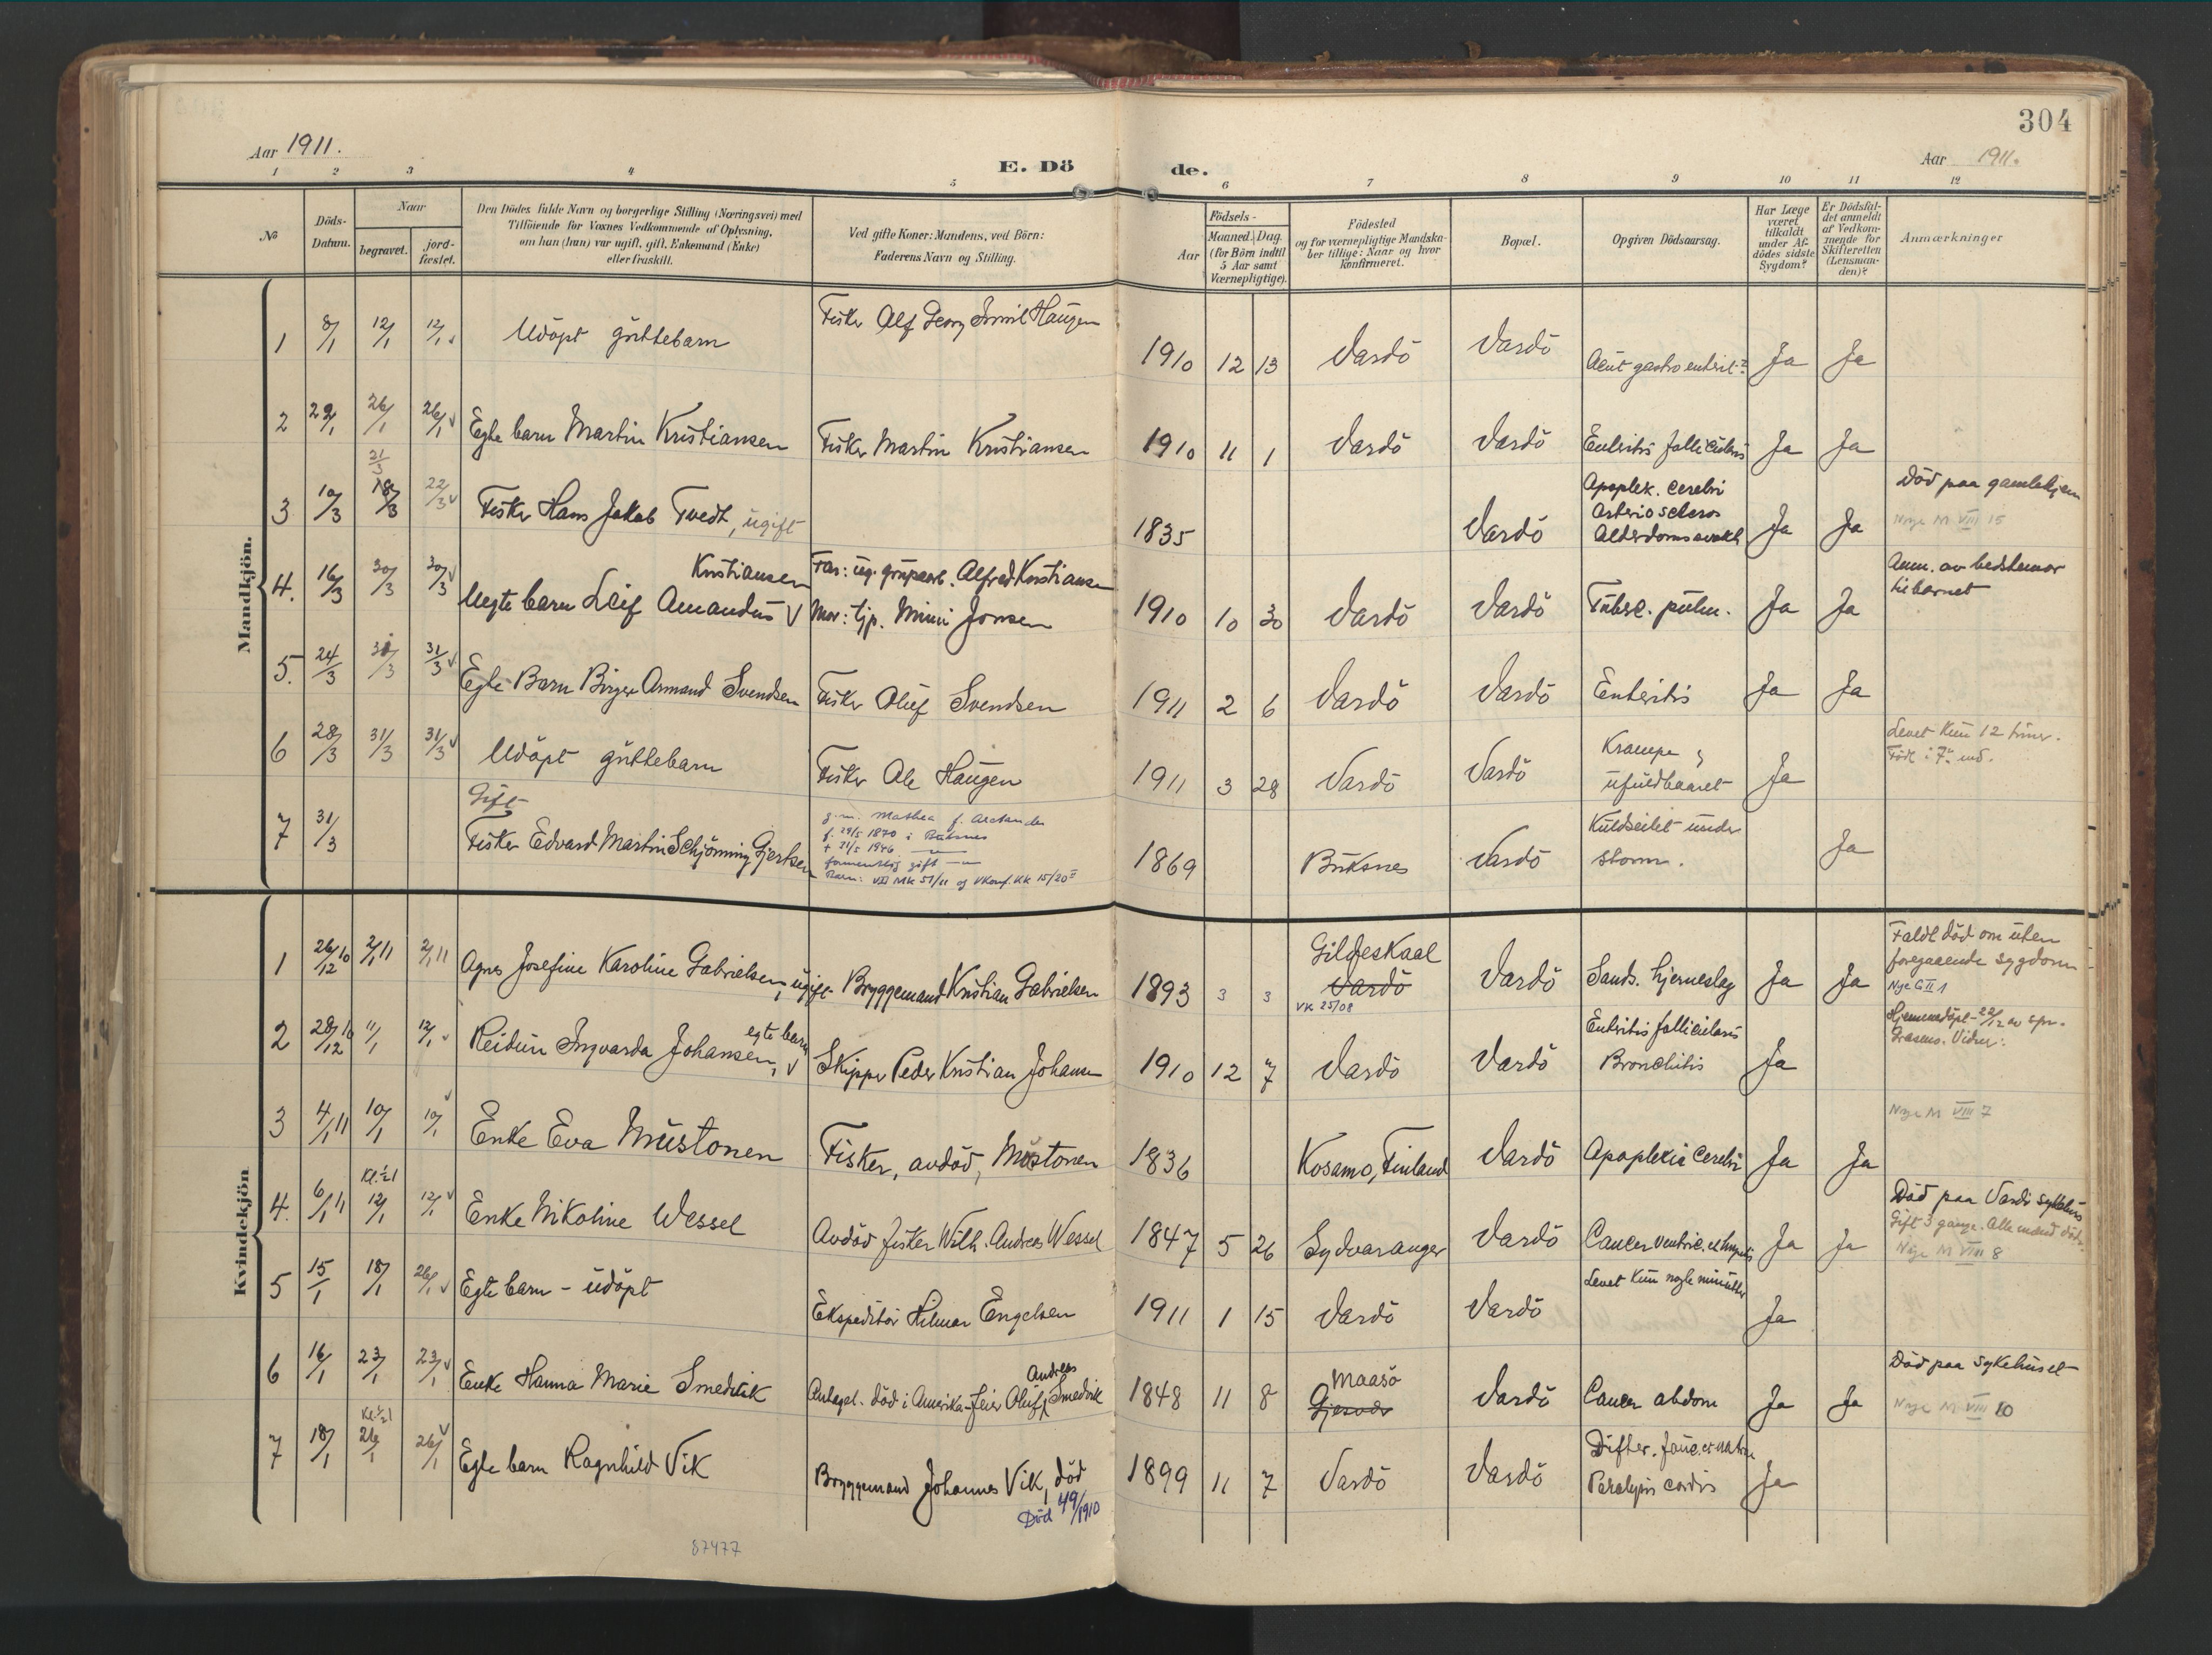 304
Aar 1911.
E. Dö de.
Aar 1911.
1 2 3 4 5 6 7 8 9 10 11 12
No
Döds-Datum.
Naar
begravet.
jord-fæstet.
Den Dödes fulde Navn og borgerlige Stilling (Næringsvei) med
Tilföiende for Voxnes Vedkommende af Oplysning,
om han (hun) var ugift, gift, Enkemand (Enke)
eller fraskilt.
Ved gifte Koner: Mandens, ved Börn:
Faderens Navn og Stilling.
Födsels-
Aar
Maaned. Dag.
(for Börn indtil
5 Aar samt
Værnepligtige).
Födested
og for værnepligtige Mandska-
ber tillige: Naar og hvor
Konfirmeret.
Bopæl.
Opgiven Dödsaarsag.
Har Læge
været
tilkaldt
under Af-
dödes sidste
Sygdom?
Er Dödsfal-
det anmeldt
af Vedkom-
mende for
Skifteretten
(Lensman-
den)?
Anmærkninger
Mandkjön.
1 8/1 12/1 12/1 Udöpt guttebarn Fisker Alf Georg Emil Haugen 1910 12 13 Vardö Vardö Acut gastroenterit? Ja Ja
2 22/1 26/1 26/1 v Egte barn Martin Kristiansen Fisker Martin Kristiansen 1910 11 1 Vardö Vardö Enteritis follicularis Ja Ja
21/3
3 10/3 18/3 22/3 v Fisker Hans Jakob Tvedt, ugift 1835 Vardö Apoplex. cerebri
Arterioscleros
Alderdomssvakh Ja Ja Död paa gamlehjem
Nye M VIII 15
4. 16/3 30/3 30/3 v Uegte barn Leif Amandus Kristiansen v Far: ug. grubearb. Alfred Kristiansen
Mor: tjp. Mimi Jonsen 1910 10 30 Vardö Vardö Tuberc. pulm. Ja Ja Anm. av bedstemor
til barnet
5. 24/3 31/3 31/3 v Egte Barn Birger Armand Svendsen Fisker Oluf Svendsen 1911 2 6 Vardö Vardö Enteritis Ja Ja
6 28/3 31/3 31/3 v Udöpt guttebarn Fisker Ole Haugen 1911 3 28 Vardö Vardö Krampe
ufuldbaaret Ja Levet kun 12 timer.
Född i 7. md.
7 31/3 Gift
Fisker Edvard Martin Schjönning Gjertsen g.m. Mathea f. Arctander
f. 29/5 1870 i Buksnes
+ 31/5 1946
Barn: VII Mk 51/11 og V Konf. KK 15/20 1869 Buksnes Vardö Kuldseilet under
storm. Ja
Kvindekjön
1 26/12 10 2/1 11 2/1 11 Agnes Josefine Karoline Gabrielsen, ugift Bryggemand Kristian Gabrielsen 1893 3 3 Gildeskaal
Vardö
VK 25/08 Vardö Sands. hjerneslag Ja Ja Faldt död om uten
foregaaende sygdom
Nye G II 1
2 28/12 10 11/1 12/1 v Reidun Ingvarda Johansen, egte barn v Skipper Peder Kristian Johansen 1910 12 7 Vardö Vardö Enteritis follicularis
Bronchitis Ja Hjemmedöpt 22/12 av spr.
3 4/1 11 10/1 10/1 v Enke Eva Mustonen Fisker, avdöd, Mustonen 1836 Kosamo, Finland Vardö Apoplexia cerebri Ja Ja Nye M VIII 7
Kl. ½ 1
4. 6/1 11 12/1 12/1 v Enke Nikoline Wessel Avdöd fisker Wilh. Andreas Wessel 1847 5 26 Sydvaranger Vardö Cancer ventric. et hepatis Ja Ja Död paa Vardö sykehus
Gift 3 gange. Alle mænd döde.
Nye M VIII 8
5 15/1 18/1 26/1 v Egte barn - udöpt Ekspeditör Hilmar Engelsen 1911 1 15 Vardö Vardö Levet kun nogle minutter Ja
6 16/1 23/1 23/1 v Enke Hanna Marie Smedvik Antagel. död i Amerika - feier Oluf Andreas Smedvik 1848 11 8 Maasö
Gjesvær Vardö Cancer abdom Ja Ja Död paa sykehuset
Nye M VIII 10
Kl. ½ 1
7 18/1 26/1 26/1 v Egte barn Ragnhild Vik Bryggemand Johannes Vik, död
Död 4/9/1910 1899 11 7 Vardö Vardö Difter. fauc. et
Paralysis cordis Ja
87477